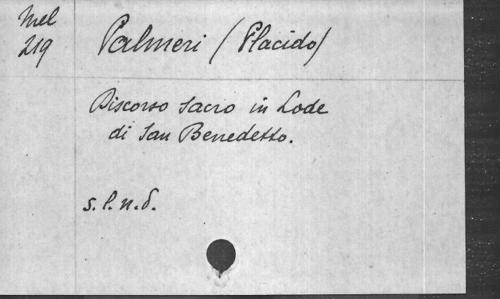 Mel
219
Palmeri (Placido)
Discorso sacro in Lode
di San Benedetto.
s.l.n.d.